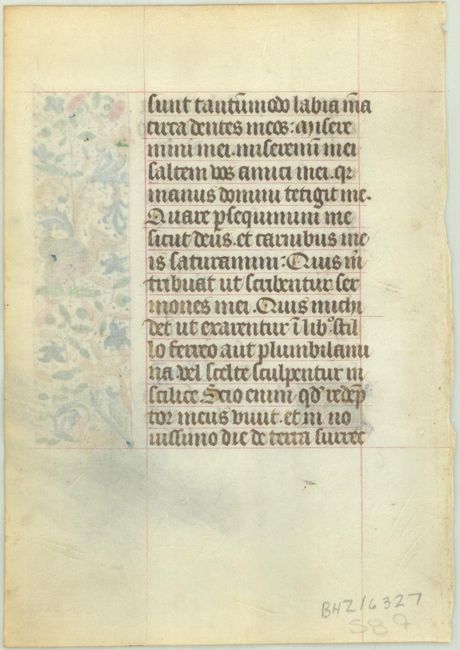 sunt tantūmodo labia ma
circa dentes meos: Misere
mini mei. miseremī mei
saltem vos amici mei. qr
manus domini tetigit me.
Quare psequimini me
sicut deus. et carnibus me
is saturamini: Quis m
tribuat ut scribentur ser
mones mei. Quis michi
det ut exarentur ī lib° stil
lo ferreo aut plumbi lami
na vel scelte sculpentur in
scilice. Scio enim qd redēp
tor meus vivit. et in no
vissimo die de terra surrec
BHZ16327